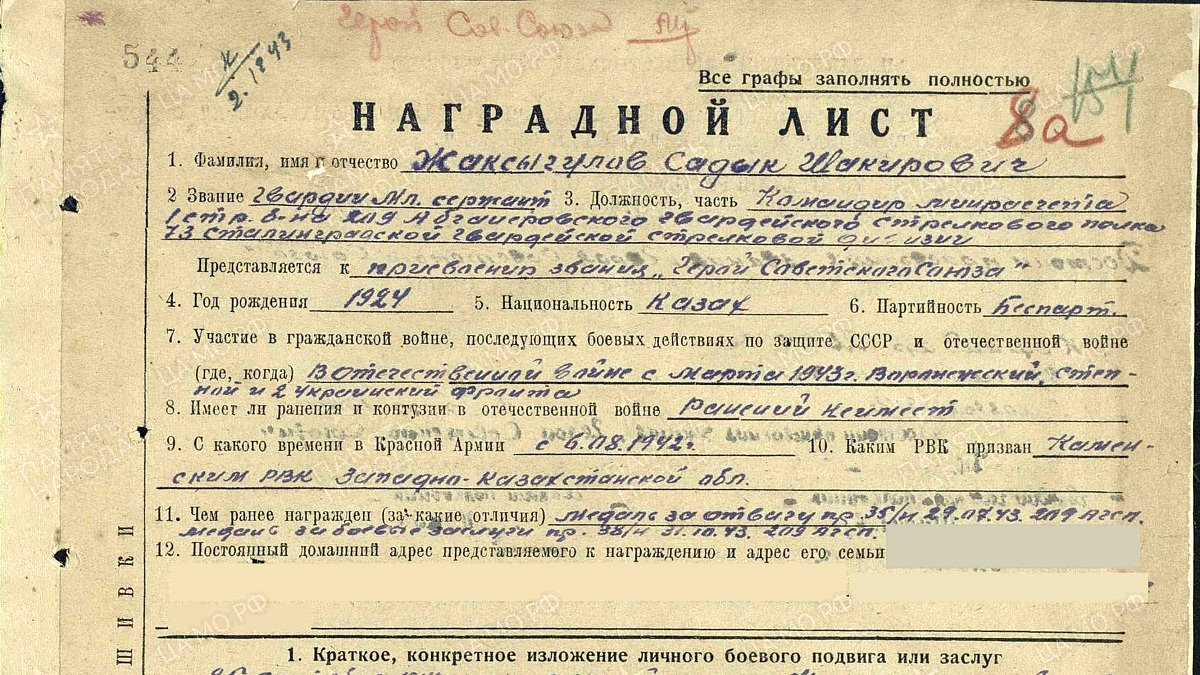 Герой Сов. Союза
544
2.1843
Все графы заполнять полностью
НАГРАДНОЙ ЛИСТ
8а
1. Фамилия, имя и отчество Жаксыгулов Садык Шакирович
2 Звание Гвардии Мл. сержант 3. Должность, часть Командир минрасчета
1 стр. б-на 209 Абганеровского Гвардейского стрелкового полка
73 Сталинградской Гвардейской стрелковой дивизии
Представляется к присвоению звания „Герой Советского Союза"
4. Год рождения 1924 5. Национальность Казах 6. Партийность Беспарт.
7. Участие в гражданской войне, последующих боевых действиях по защите СССР и отечественной войне
(где, когда) В отечественной войне с марта 1943 г. Воронежский, Степ-
ной и 2 Украинский фронта
8. Имеет ли ранения и контузии в отечественной войне Ранений не имеет
9. С какого времени в Красной Армии с 6.08.1942 г. 10. Каким РВК призван Камен-
ским РВК Западно-Казахстанской обл.
11. Чем ранее награжден (за какие отличия) медаль за отвагу пр. 35/н 29.07.43. 209 Агсп.
медаль за боевые заслуги пр. 38/н 31.10.43. 209 Агсп.
12. Постоянный домашний адрес представляемого к награждению и адрес его семьи
ШИВКИ
1. Краткое, конкретное изложение личного боевого подвига или заслуг